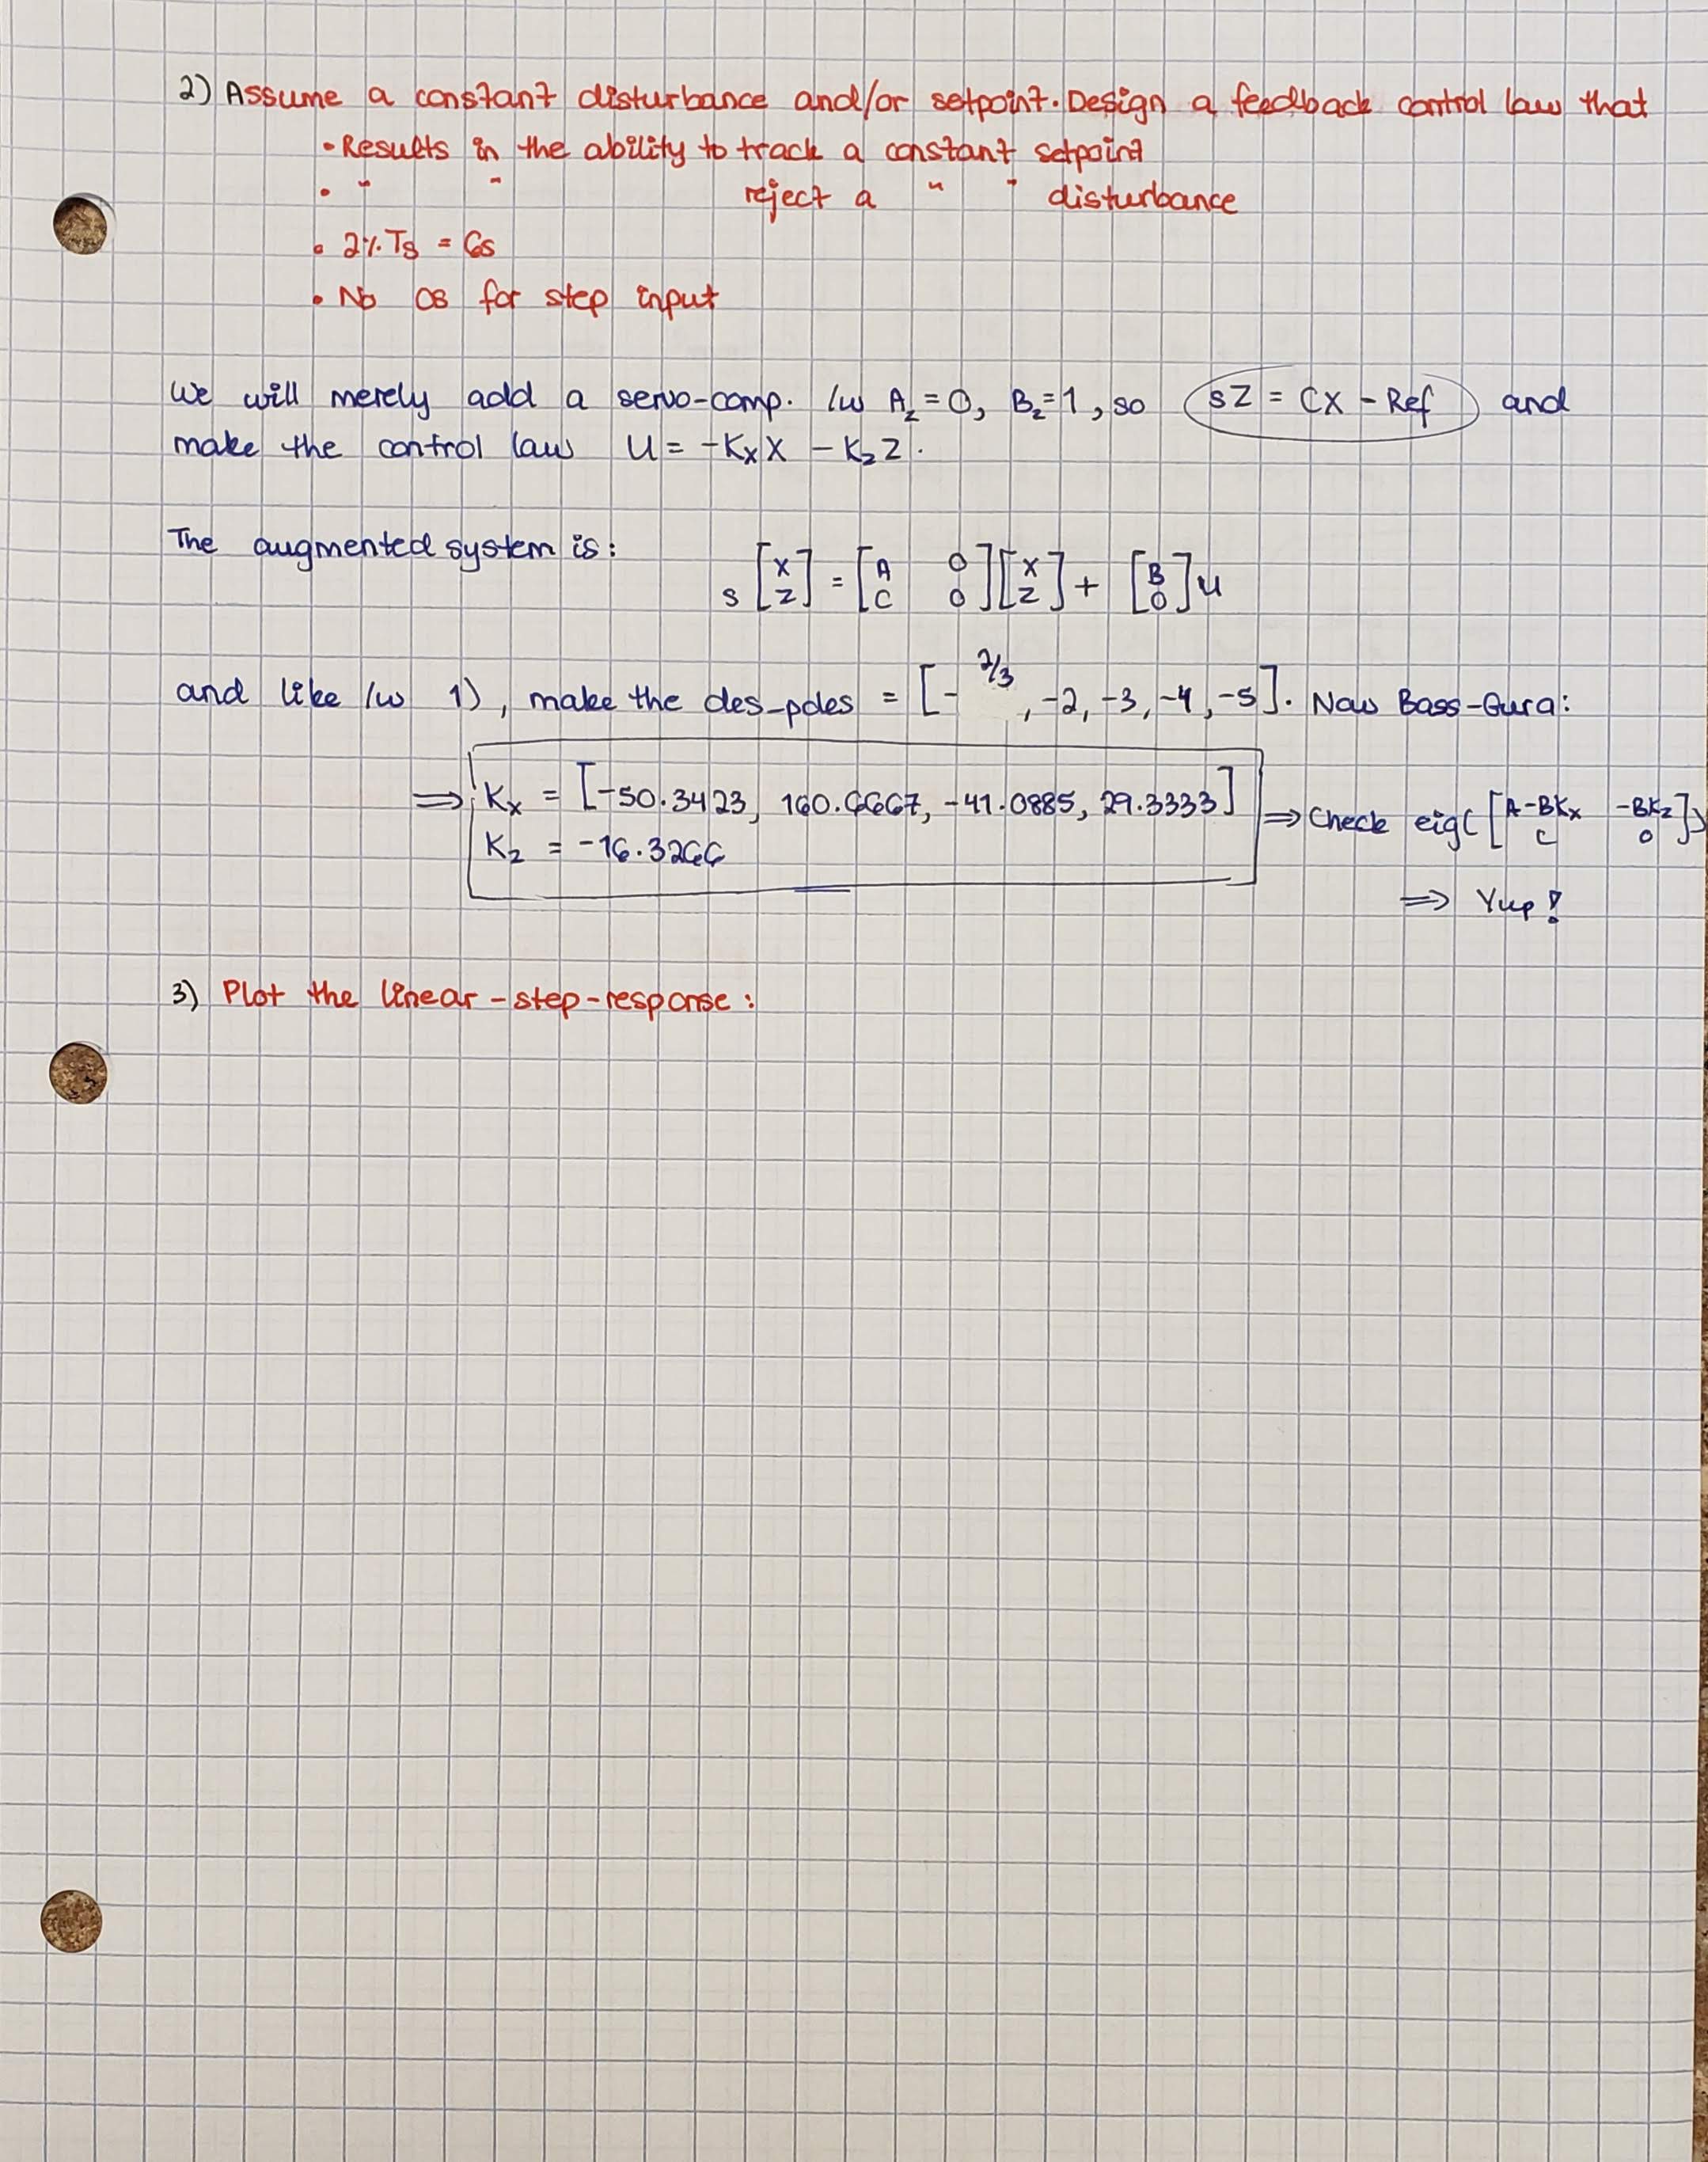 2) Assume a constant disturbance and/or setpoint. Design a feedback control law that
• Results in the ability to track a constant setpoint
• " " reject a " " disturbance
• 2% Ts = 6s
• No OS for step input
We will merely add a servo-comp. /w A_z = 0, B_z = 1, so sZ = CX - Ref and
make the control law U = -K_x X - K_z Z.
The augmented system is: s [X; Z] = [A 0; C 0] [X; Z] + [B; 0] U
and like /w 1), make the des_poles = [-2/3, -2, -3, -4, -5]. Now Bass-Gura:
⇒ K_x = [-50.3423, 160.6667, -41.0885, 29.3333] ⇒ Check eig([A-BK_x -BK_z; C 0])
K_z = -16.3266
⇒ Yup!
3) Plot the linear-step-response: